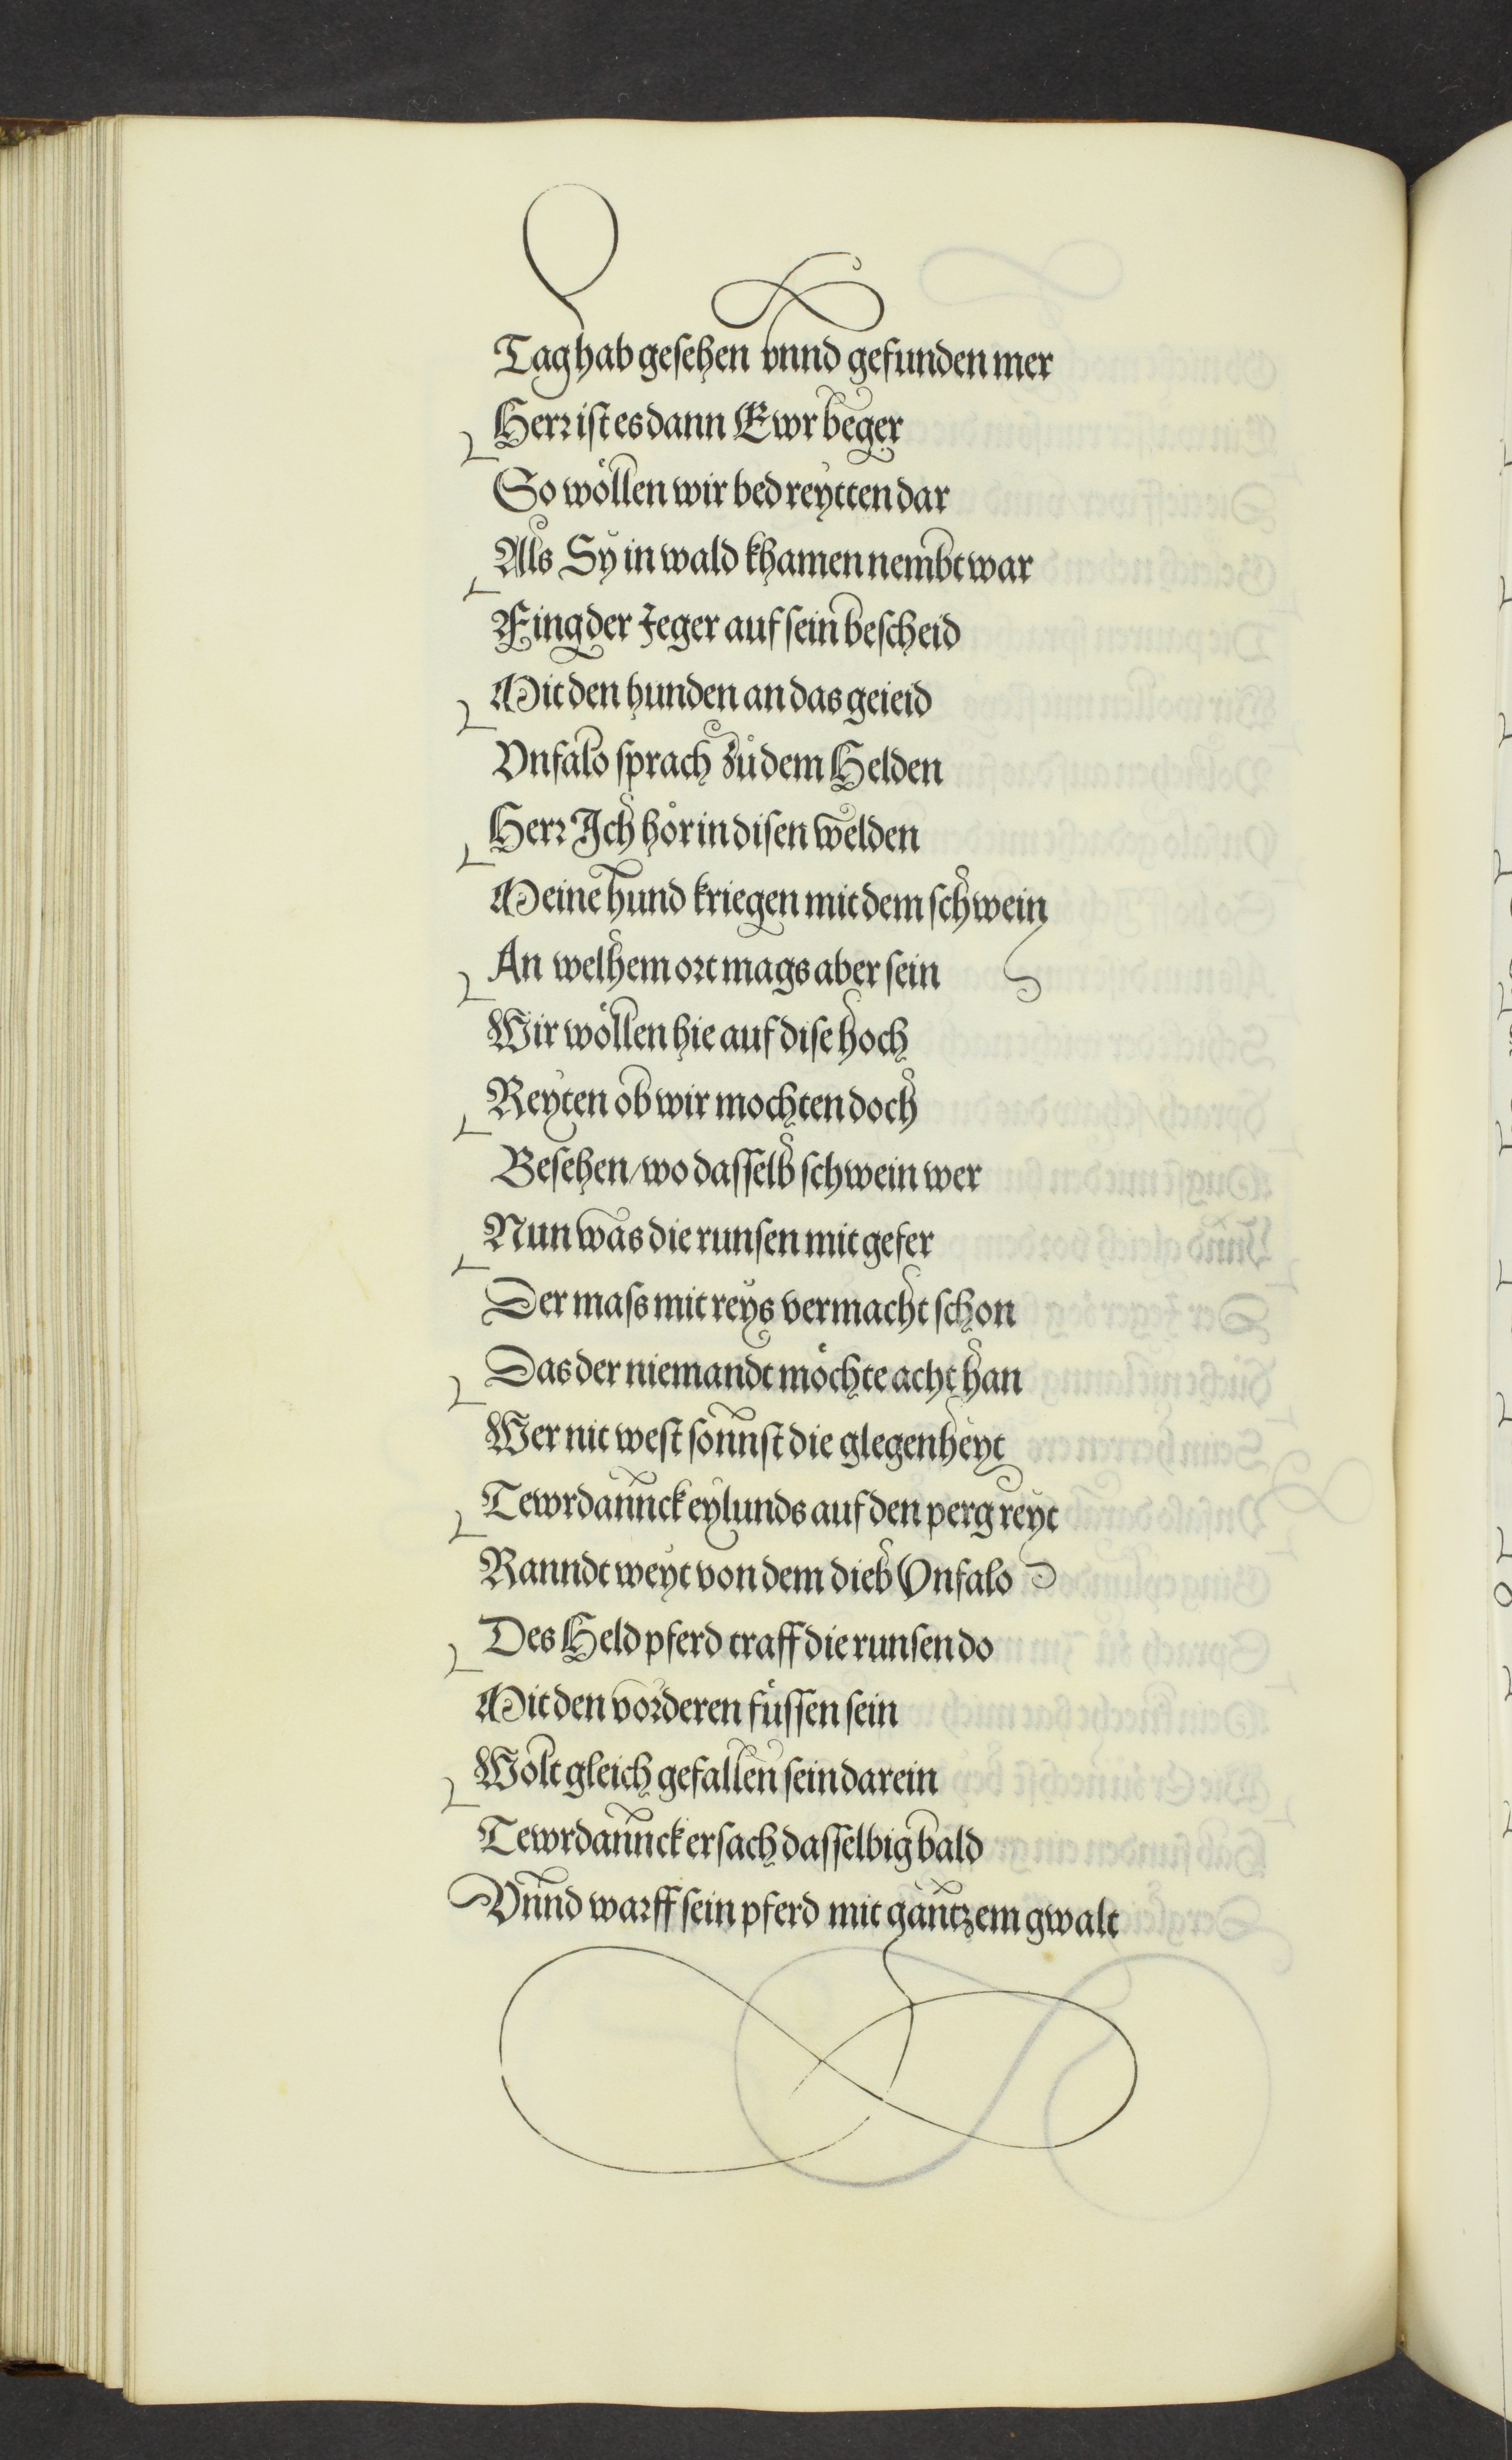 Tag hab gesehen vnnd gefunden mer
Herr ist es dann Ewr beger
So wöllen wir bed reytten dar
Als Sy in wald khamen nembt war
Fing der Jeger auf sein bescheid
Mit den hunden an das geieid
Vnfalo sprach zů dem Helden
Herr Ich hör in disen welden
Meine hund kriegen mit dem schwein
An welhem ort mags aber sein
Wir wöllen hie auf dise hoch
Reyten ob wir mochten doch
Besehen/wo dasselb schwein wer
Nun was die runsen mit gefer
Der mass mit reys vermacht schon
Das der niemandt möchte acht han
Wer nit west sonnst die glegenheyt
Tewrdannck eylunds auf den perg reyt
Ranndt weyt von dem dieb Vnfalo
Des Held pferd traff die runsen do
Mit den vorderen füssen sein
Wolt gleich gefallen sein darein
Tewrdannck ersach dasselbig bald
Vnnd warff sein pferd mit gantzem gwalt